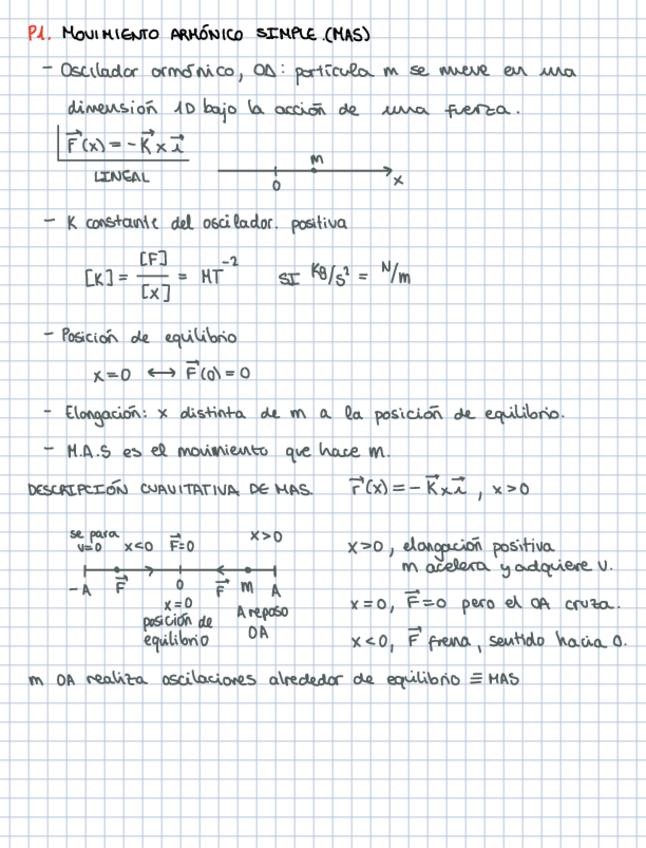 P1. MOVIMIENTO ARMÓNICO SIMPLE.(MAS)
- Oscilador armónico, OA: partícula m se mueve en una
dimensión 1D bajo la acción de una fuerza.
F⃗(x) = -K⃗xi⃗
LINEAL
m
0
x
- K constante del oscilador. positiva
[K] = [F]/[x] = MT⁻² SI Kg/s² = N/m
- Posición de equilibrio
x=0 ↔ F⃗(0)=0
- Elongación: x distinta de m a la posición de equilibrio.
- M.A.S es el movimiento que hace m.
DESCRIPCIÓN CUAVITATIVA DE MAS. F⃗(x) = -K⃗xi⃗, x>0
se para
v=0 x<0 F⃗=0 x>0
-A F⃗ 0 F⃗ m A
x=0 A reposo
posición de OA
equilibrio
x>0, elongación positiva
m acelera y adquiere v.
x=0, F⃗=0 pero el OA cruza.
x<0, F⃗ frena, sentido hacia 0.
m OA realiza oscilaciones alrededor de equilibrio ≡ MAS